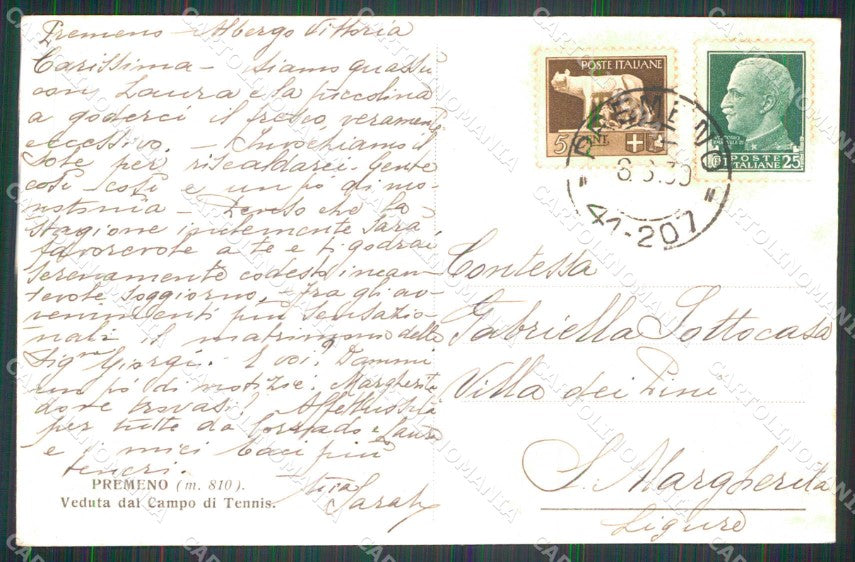 Premeno - Albergo Vittoria
Carissima - siamo quassù
con Laura e la piccolina
a goderci il fresco, veramente
eccessivo. - Invochiamo il
sole per riscaldarci. Gente
così così e un pò di mo-
notonia - Penso che la
stagione inclemente sarà
favorevole a te e ti godrai
serenamente codesto incan-
tevole soggiorno. Fra gli av-
venimenti più sensazio-
nali il matrimonio della
Sigra Giorgi. E voi? Dammi
un pò di notizie. Margherita
dove trovasi? Affettuosità
per tutte da Corrado e Laura
e i miei baci più
teneri.
tua Sarah
PREMENO (m. 810).
Veduta dal Campo di Tennis.
POSTE ITALIANE
5
POSTE
ITALIANE 25
PREMENO
41-207
Contessa
Gabriella Sottocasa
Villa dei Pini
S. Margherita
Ligure
CARTOLINOMANIA